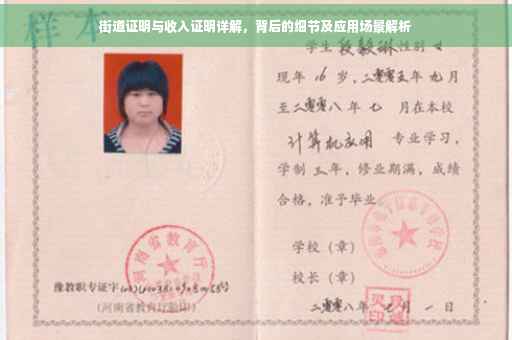 街道证明与收入证明详解，背后的细节及应用场景解析
样本
学生段毅琳性别女
现年16岁，二零零五年九月
至二零零八年七月在本校
计算机应用 专业学习，
学制三年，修业期满，成绩
合格，准予毕业。
学校（章）
校长（章）
二零零八年 月一日
河南省教育厅
豫教职专证字
(河南省教育厅验印)